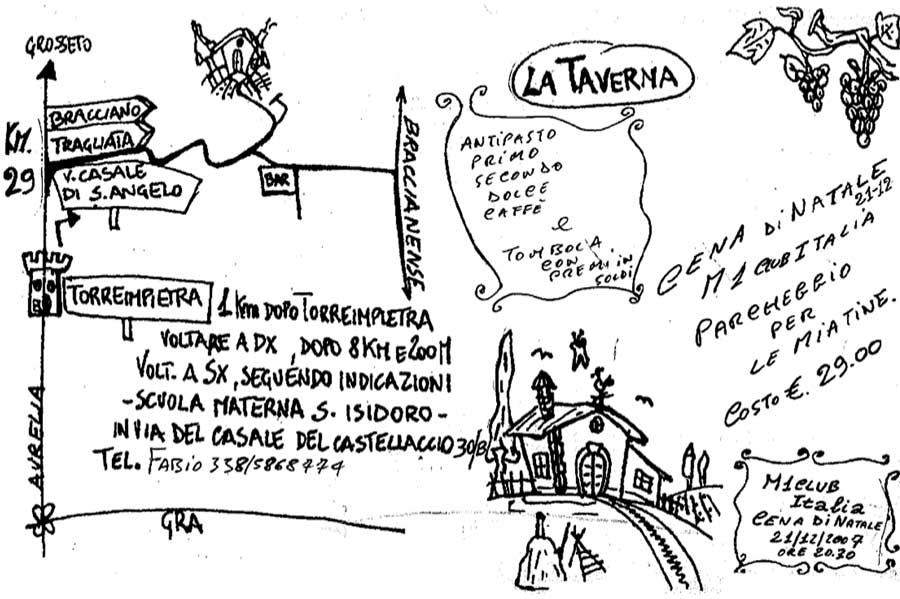 GROSSETO
BRACCIANO
TRAGLIATA
KM.
29
V. CASALE
DI S. ANGELO
BAR
BRACCIANENSE
TORREIMPIETRA
1 Km DOPO TORREIMPIETRA
VOLTARE A DX, DOPO 8 KM E 200 M
VOLT. A SX, SEGUENDO INDICAZIONI
-SCUOLA MATERNA S. ISIDORO-
IN VIA DEL CASALE DEL CASTELLACCIO 30/B
TEL. FABIO 338/5868774
AURELIA
GRA
LA TAVERNA
ANTIPASTO
PRIMO
SECONDO
DOLCE
CAFFÈ
e
TOMBOLA
CON
PREMI IN
SOLDI
CENA DI NATALE
21-12
M1 CLUB ITALIA
PARCHEGGIO
PER
LE MIATINE.
COSTO €. 29.00
M1 CLUB
Italia
CENA DI NATALE
21/12/2007
ORE 20.30